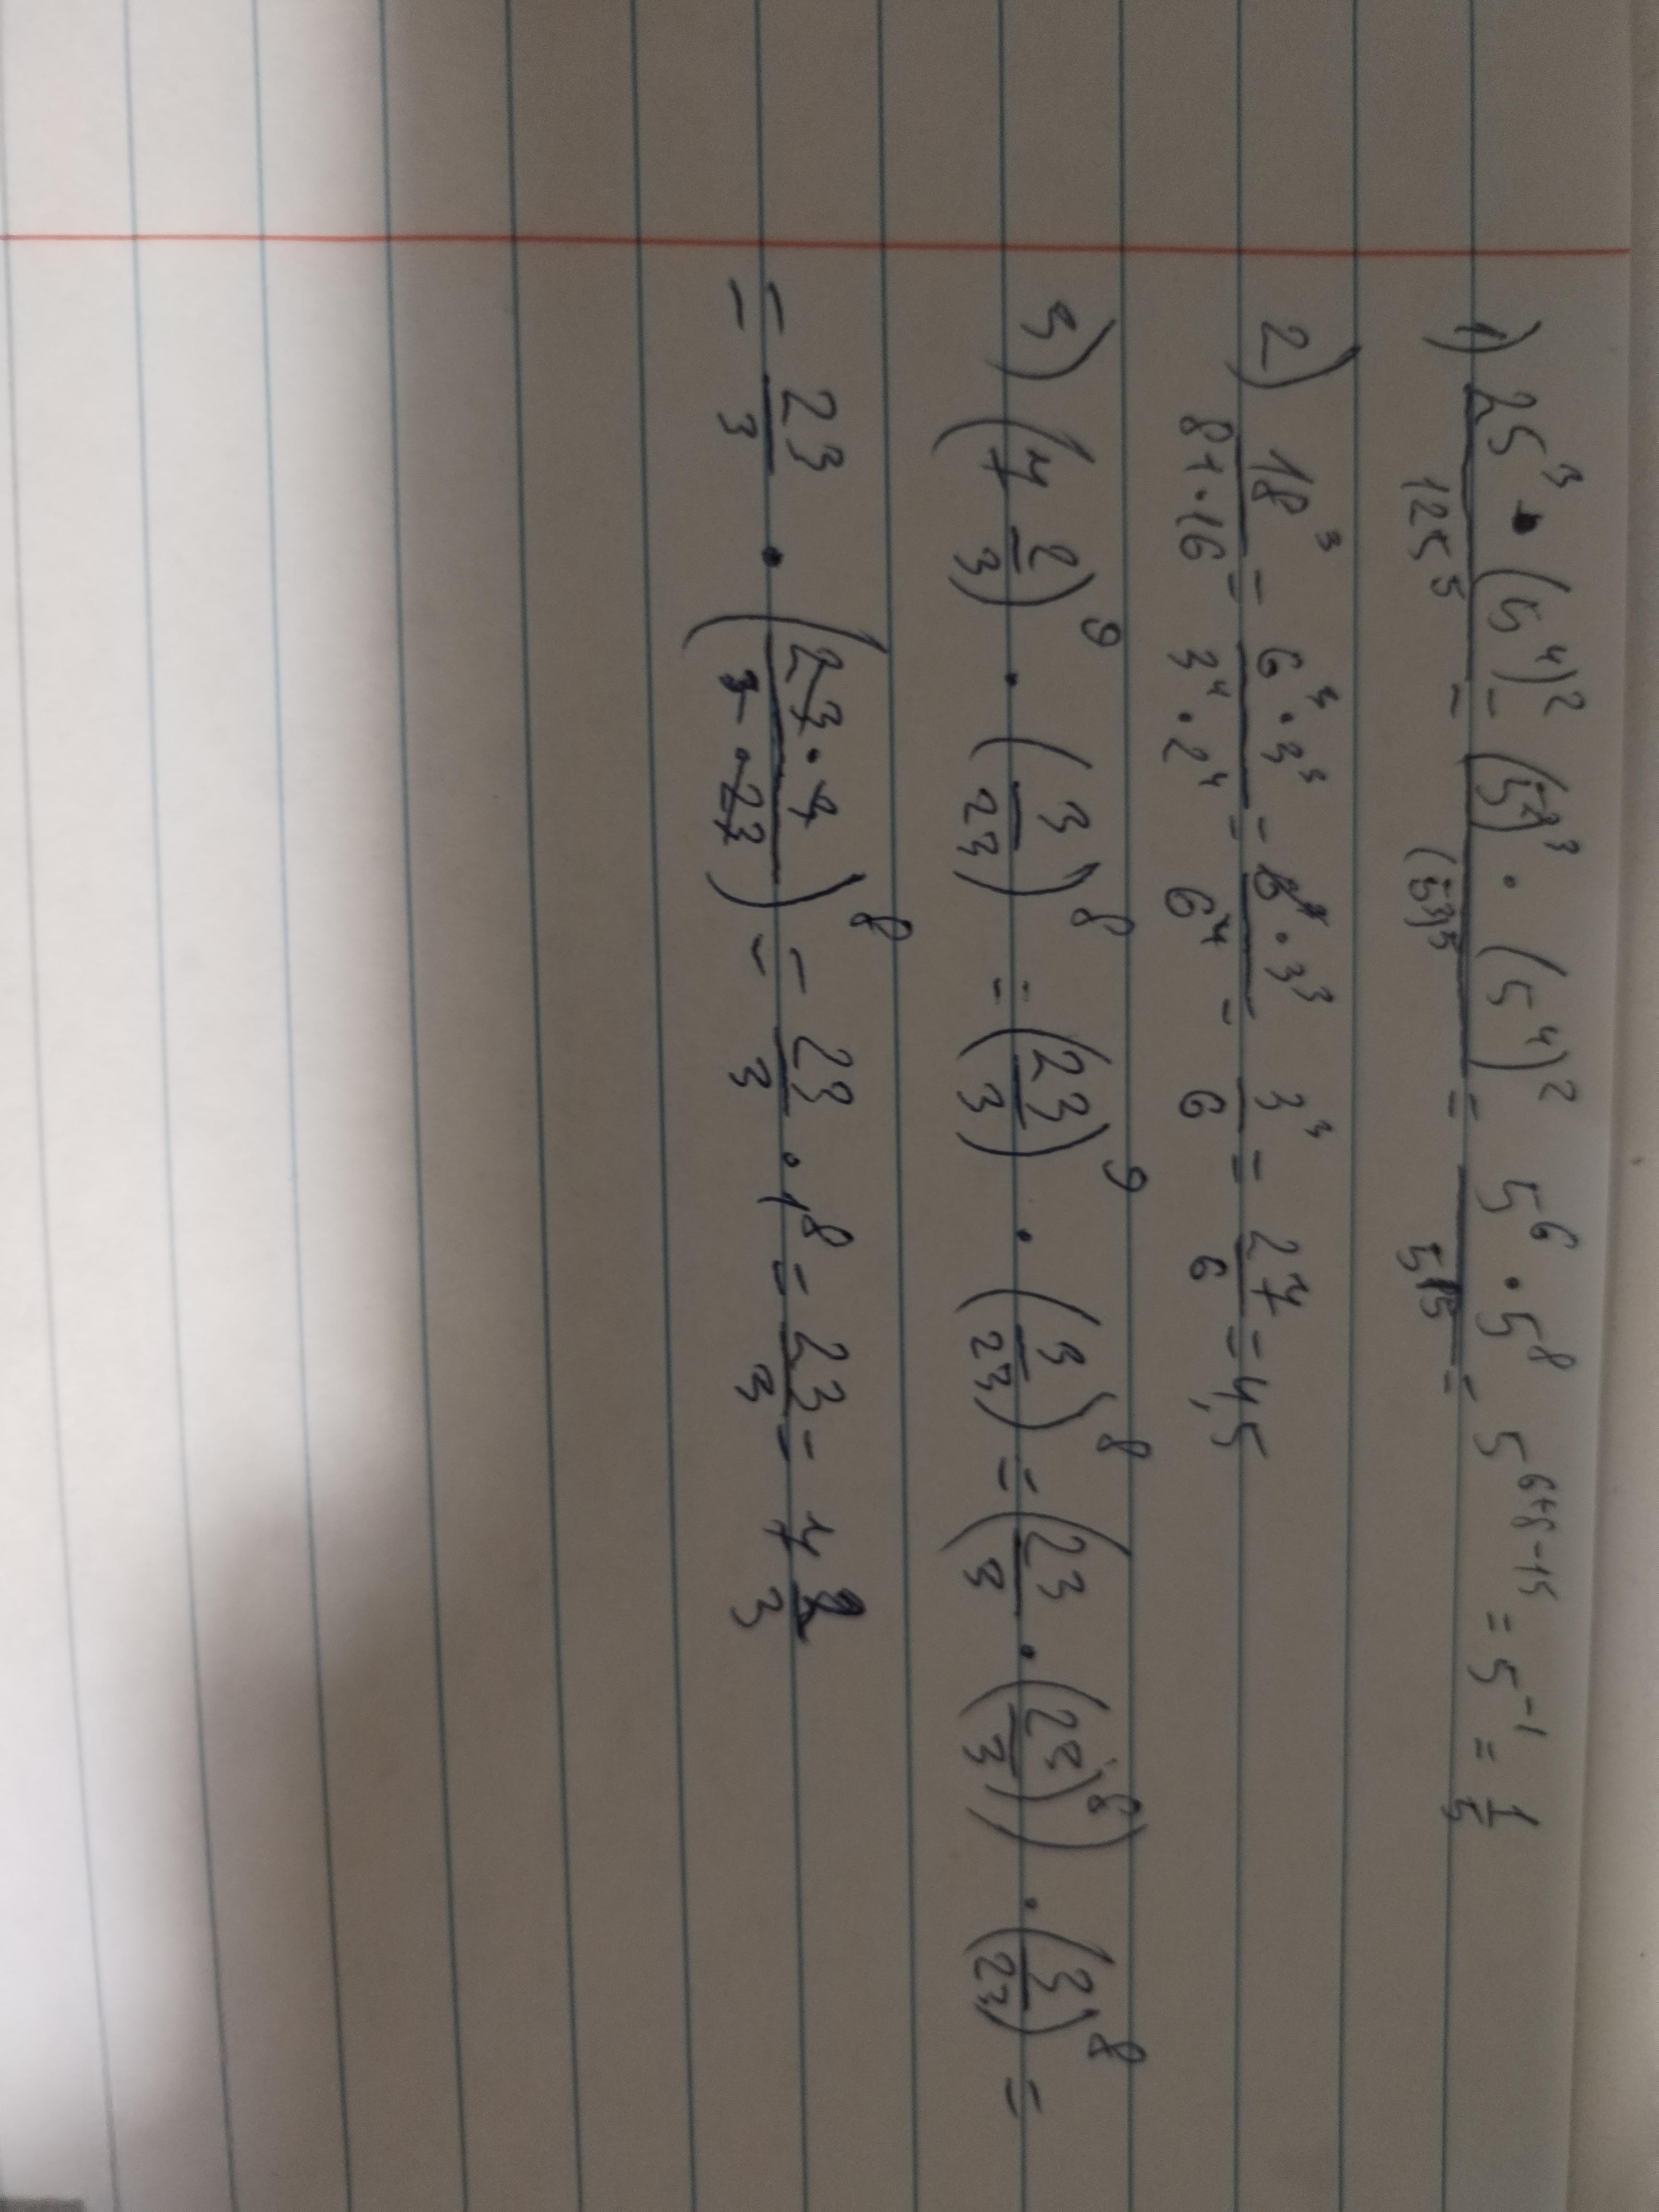 1) 25³ · (5⁴)² / 125⁵ = (5²)³ · (5⁴)² / (5³)⁵ = 5⁶ · 5⁸ / 5¹⁵ = 5⁶⁺⁸⁻¹⁵ = 5⁻¹ = 1/5
2) 18³ / 81·16 = 6³ · 3³ / 3⁴ · 2⁴ = 6³ · 3³ / 6⁴ = 3³ / 6 = 27 / 6 = 4,5
3) (7 2/3)⁹ · (3/23)⁸ = (23/3)⁹ · (3/23)⁸ = (23/3 · (23/3)⁸) · (3/23)⁸ =
= 23/3 · (23·3 / 3·23)⁸ = 23/3 · 1⁸ = 23/3 = 7 2/3